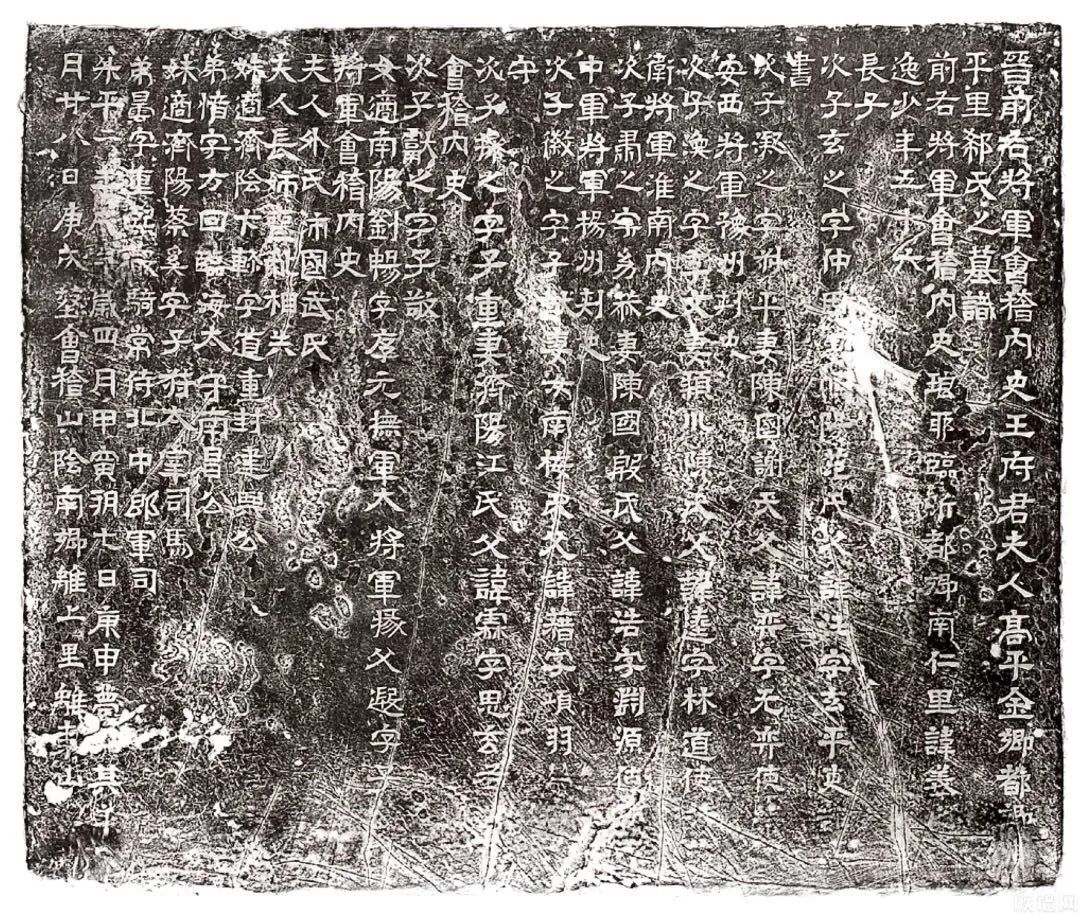 晉前右將軍會稽內史王府君夫人高平金鄉都鄉
平里郗氏之墓識
前右將軍會稽內史琅耶臨沂都鄉南仁里諱羲
逸少年五十六
長子
次子玄之字仲 妻 陽范氏父諱汪字玄平吏
書
次子凝之字叔平妻陳國謝氏父諱弈字无弈使
安西將軍豫州刺史
次子渙之字 文妻潁川陳氏父諱逵字林道使
衛將軍淮南內史
次子肅之字幼恭妻陳國殷氏父諱浩字淵源使
中軍將軍揚州刺史
次子徽之字子 妻汝南梅氏父諱籍字項羽
守
次子操之字子重妻濟陽江氏父諱霖字思玄
會稽內史
次子獻之字子敬
女適南陽劉暢字 元撫軍大將軍掾父遐字
將軍會稽內史
夫人外氏沛國武氏
夫人長姉 相夫
妹適濟陰卞軫字道重封建興公
弟愔字方回臨海太守南昌公
妹適濟陽蔡 字子 太宰司馬
弟曇字重熙散騎常侍北中郎軍司
升平二年 四月甲寅朔七日庚申薨其年
月廿八日庚 塟會稽山陰南鄉離上里離 山